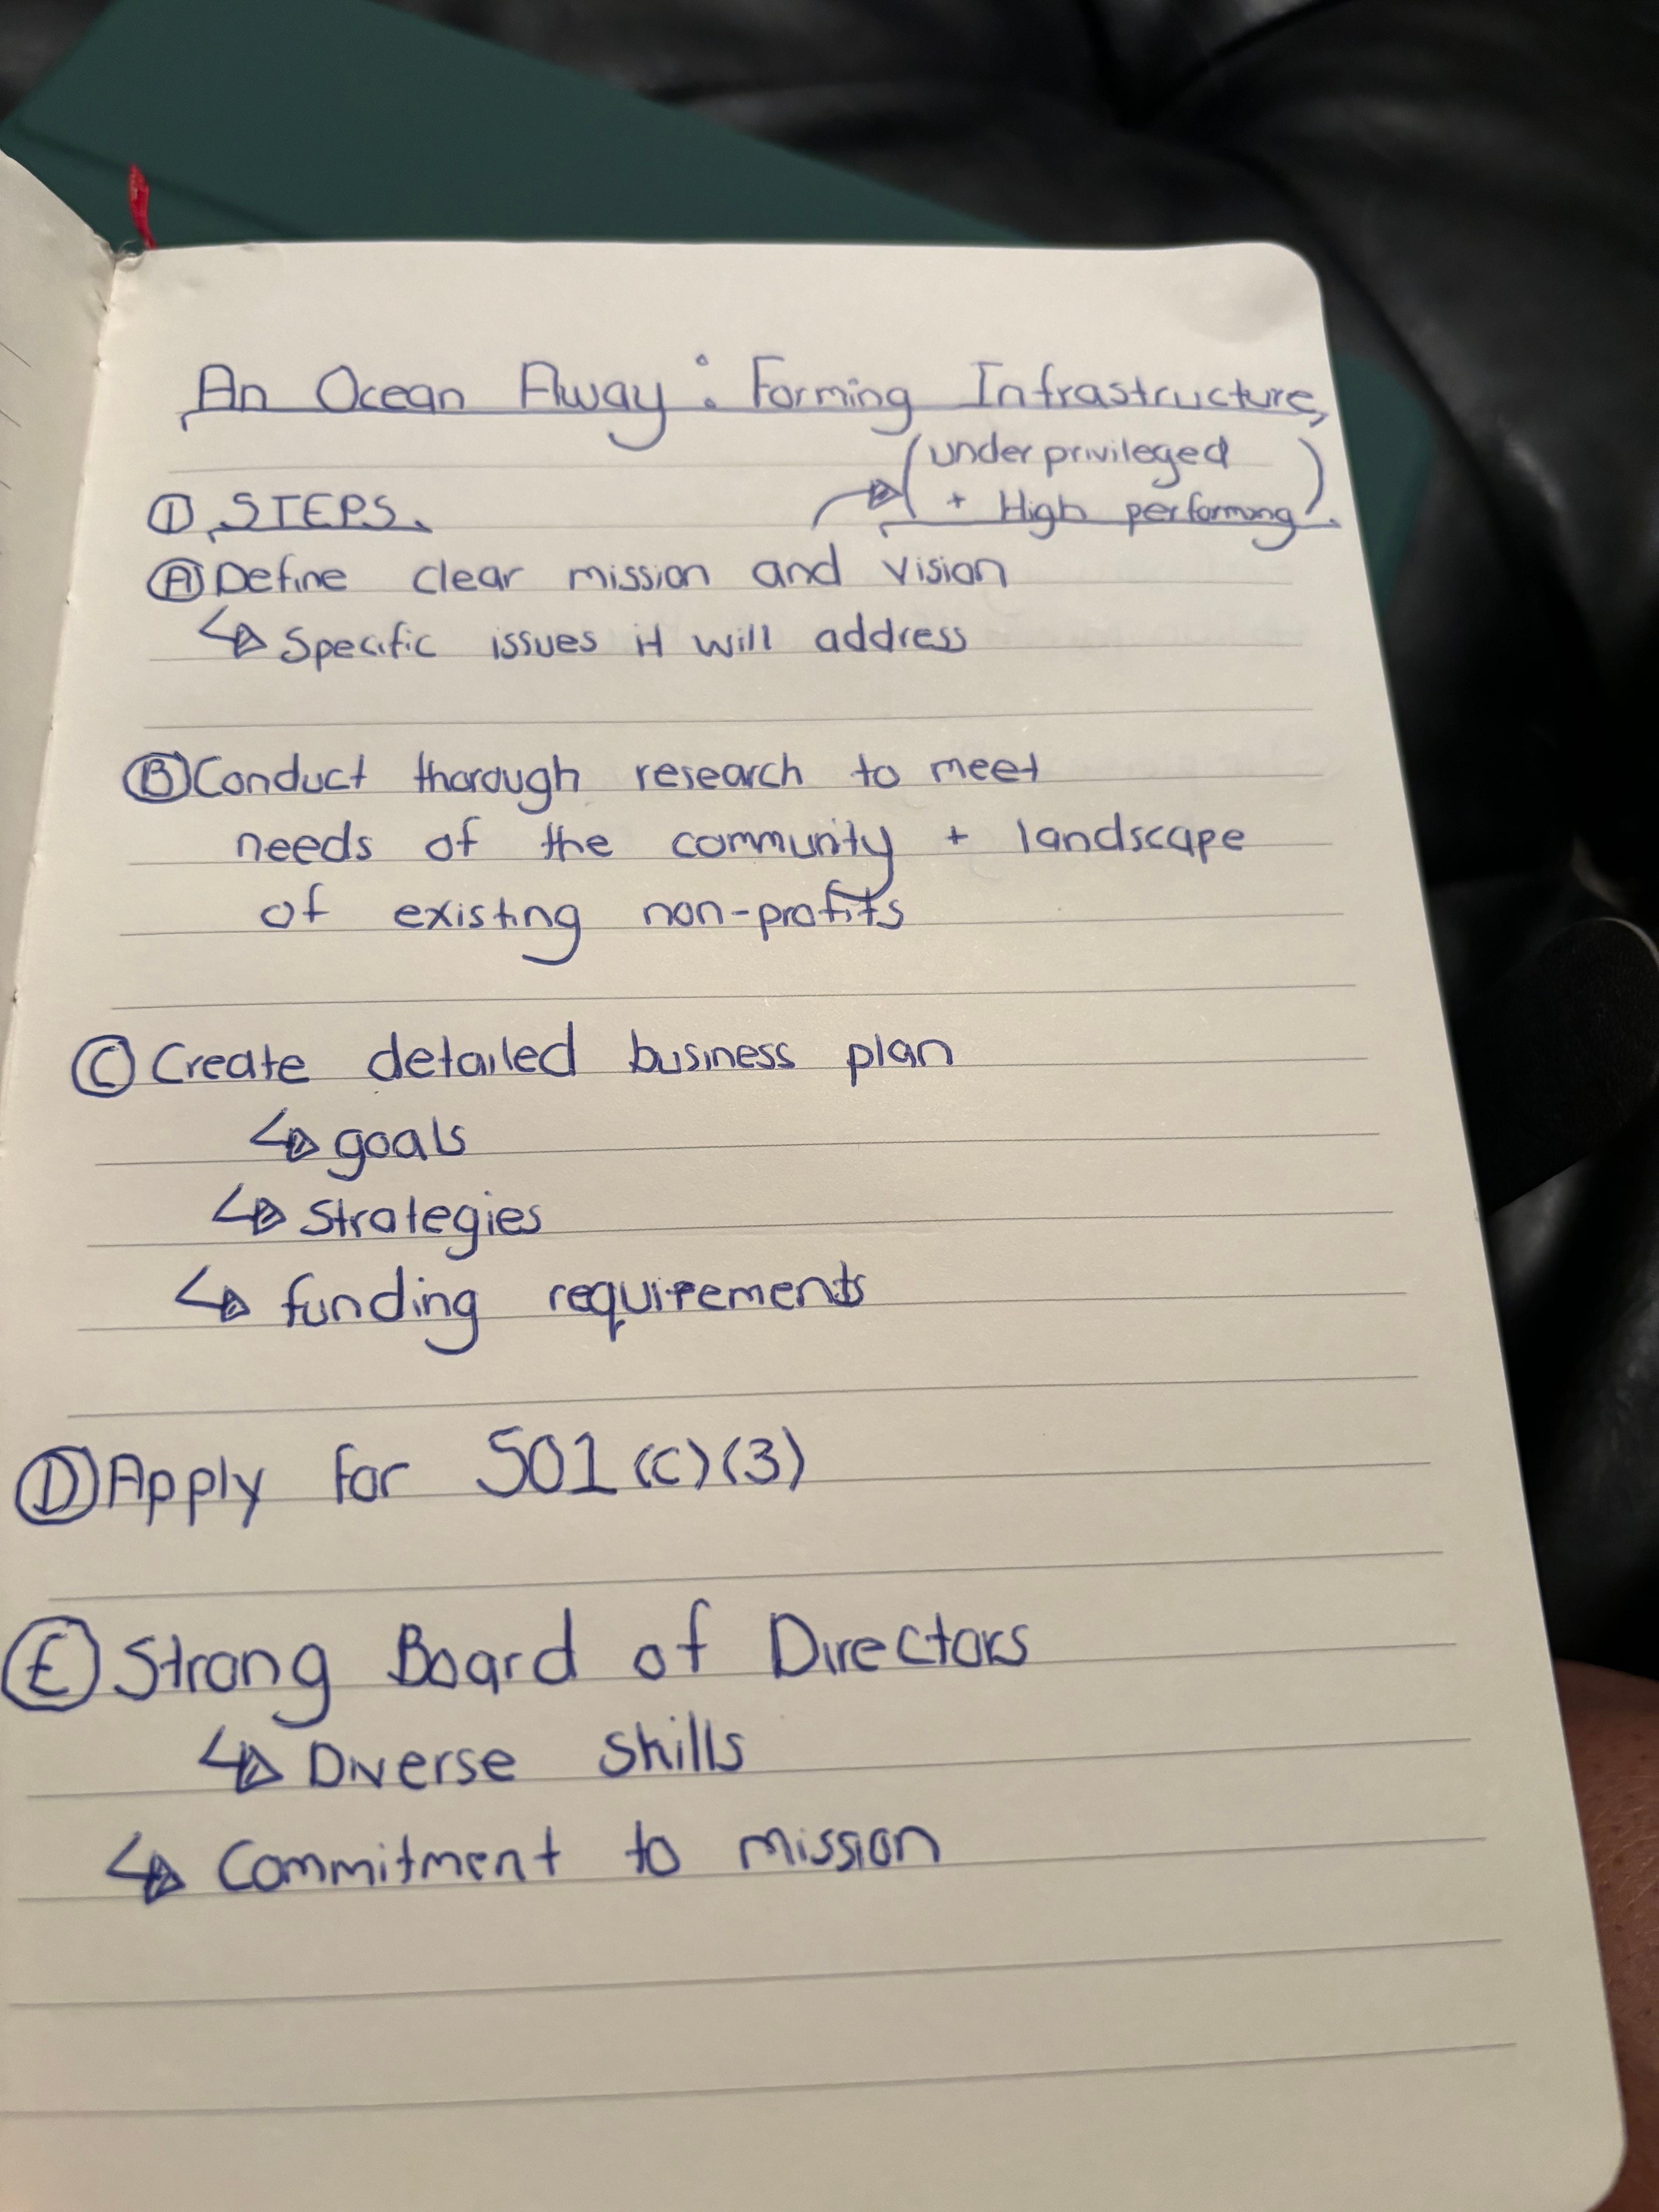 An Ocean Away: Forming Infrastructure
(underprivileged
+ High performing)
① STEPS
Ⓐ Define clear mission and vision
↳ Specific issues it will address
Ⓑ Conduct thorough research to meet
needs of the community + landscape
of existing non-profits
Ⓒ Create detailed business plan
↳ goals
↳ Strategies
↳ funding requirements
Ⓓ Apply for 501(c)(3)
Ⓔ Strong Board of Directors
↳ Diverse skills
↳ Commitment to mission